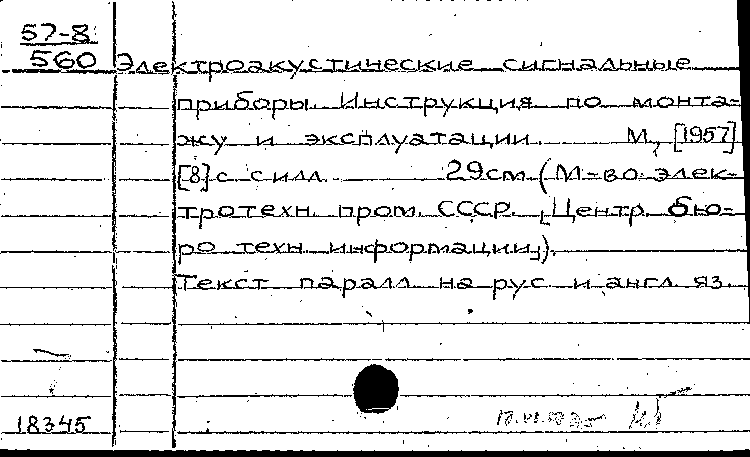 57-8
560 Электроакустические сигнальные
приборы. Инструкция по монта-
жу и эксплуатации. М., [1957]
[8] с. с илл. 29см. (М-во элек-
тротехн. пром. СССР. [Центр. бю-
ро техн. информации]).
Текст паралл. на рус. и англ. яз.
18345